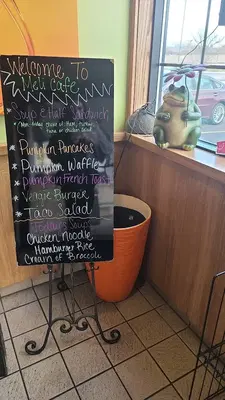 Welcome To
Meli Cafe
Soup & Half Sandwich
tuna or chicken salad
Pumpkin Pancakes
Pumpkin Waffle
Pumpkin French Toast
Veggie Burger
Taco Salad
Today's Soups
Chicken Noodle,
Hamburger Rice
Cream of Broccoli